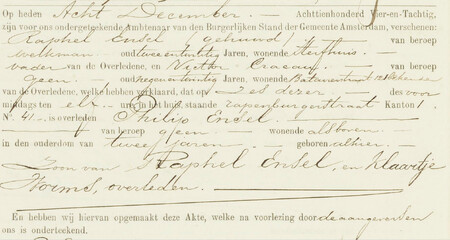 Op heden Acht December. Achttienhonderd Vier-en-Tachtig,
zijn voor ons ondergeteekende Ambtenaar van den Burgerlijken Stand der Gemeente Amsterdam, verschenen:
Raphel Ensel (gehuwd) van beroep
werkman oud tweeentachtig Jaren, wonende
vader van de Overledene, en Victor van beroep
geen oud Jaren, wonende
van de Overledene, welke hebben verklaard, dat op Zes dezer des voor
middags ten elf ure, in het huis staande Rapenburgerstraat Kanton 1
N°. 41 is overleden Philip Ensel.
van beroep geen wonende alsboven
in den ouderdom van twee Jaren geboren alhier
Zoon van Raphel Ensel, en Klaartje
Worms, overleden.
En hebben wij hiervan opgemaakt deze Akte, welke na voorlezing door de aangevers en
ons is onderteekend.